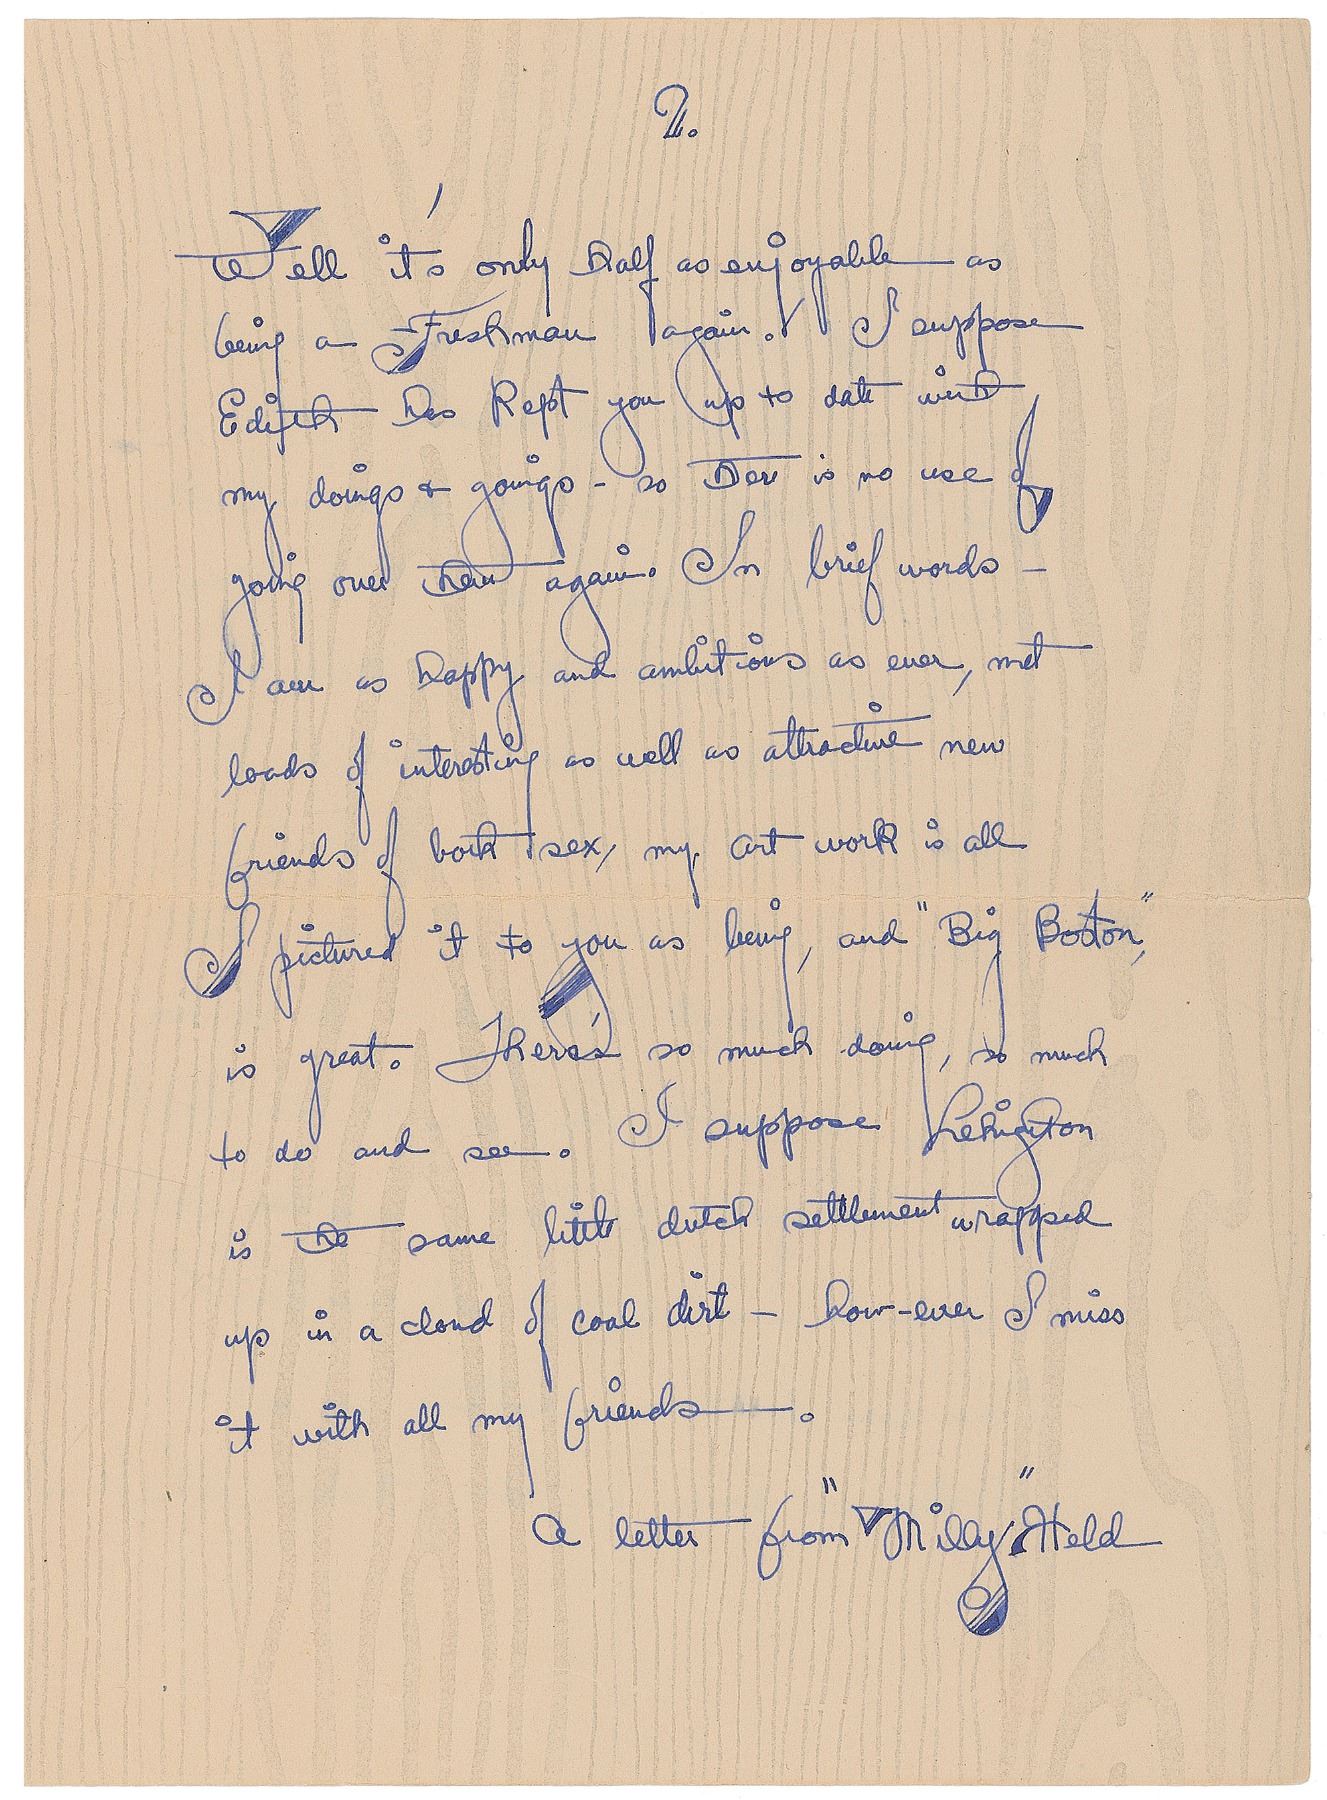 2.
Well it's only half as enjoyable as
being a Freshman again. I suppose
Edith has kept you up to date with
my doings & goings - so ther is no use of
going over them again. In brief words -
I am as happy and ambitious as ever, met
loads of interesting as well as attractive new
friends of both sex, my art work is all
I pictured it to you as being, and "Big Boston,"
is great. There's so much doing, so much
to do and see. I suppose Lehighton
is the same little dutch settlement wrapped
up in a cloud of coal dirt - how-ever I miss
it with all my friends.
A letter from "Milly" Held